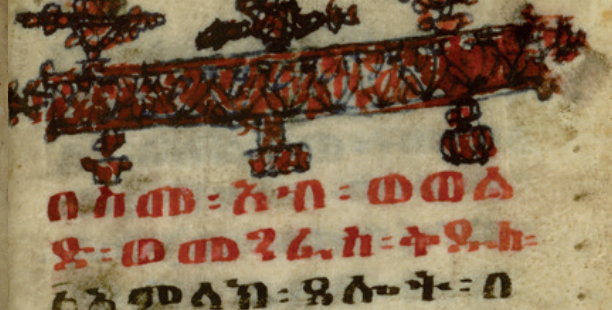 በስመ፡ አብ፡ ወወል
ድ፡ ወመንፈስ፡ ቅዱስ፡
፩አምላክ፡ ጸሎት፡ በ